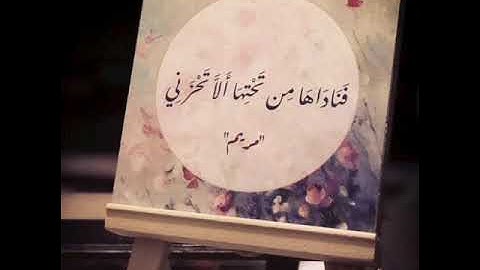 فَنَادَاهَا مِن تَحْتِهَا أَلَّا تَحْزَنِي
"مريم"